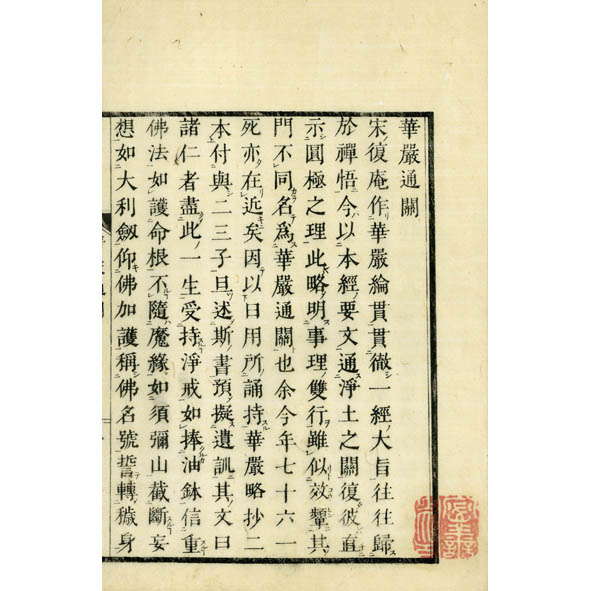 華嚴通關
宋復庵作華嚴綸貫貫徹一經大旨往往歸
於禪悟今以本經要文通淨土之關復彼直
示圓極之理此略明事理雙行雖似效顰其
門不同名爲華嚴通關也余今年七十六一
死亦在近矣因以日用所誦持華嚴略抄二
本付與二三子且述斯書預擬遺訓其文曰
諸仁者盡此一生受持淨戒如捧油鉢信重
佛法如護命根不隨魔緣如須彌山截斷妄
想如大利劔仰佛加護稱佛名號誓轉穢身